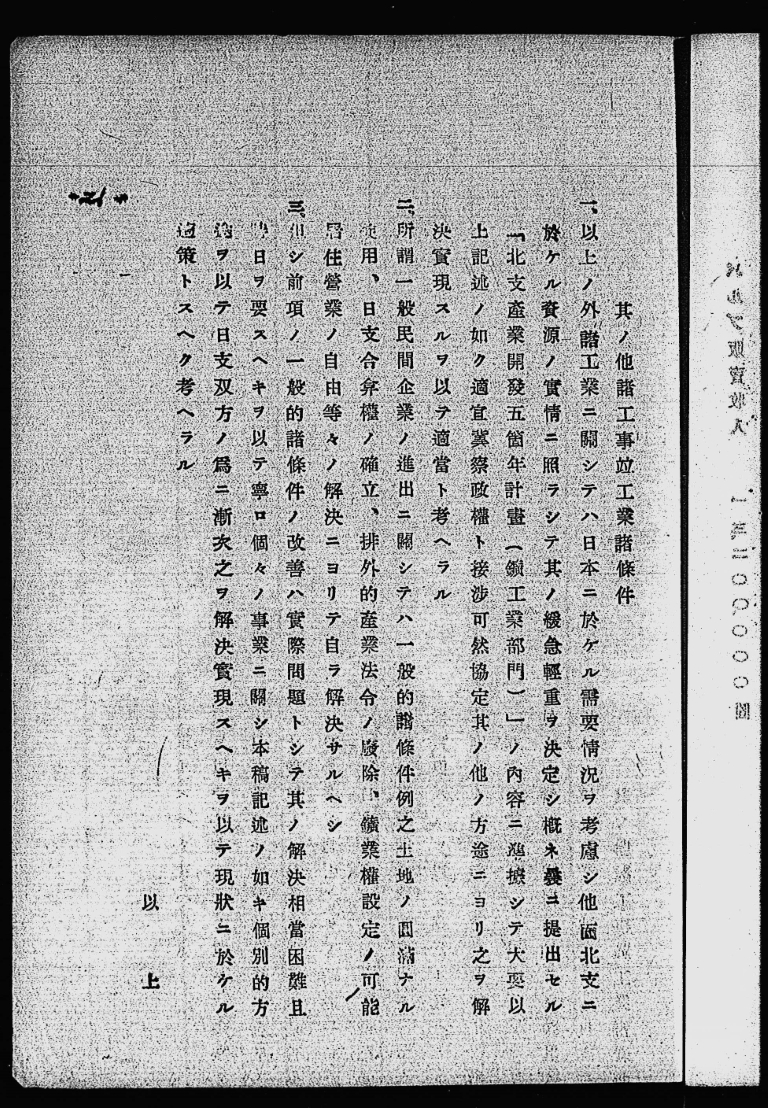 其ノ他諸工事竝工業諸條件
一、以上ノ外諸工業ニ關シテハ日本ニ於ケル需要情況ヲ考慮シ他面北支ニ
於ケル資源ノ實情ニ照ラシテ其ノ緩急輕重ヲ決定シ概ネ曩ニ提出セル
「北支產業開發五箇年計畫（鑛工業部門）」ノ內容ニ準據シテ大要以
上記述ノ如ク適宜冀察政權ト接涉可然協定其ノ他ノ方途ニヨリ之ヲ解
決實現スルヲ以テ適當ト考ヘラル
二、所謂一般民間企業ノ進出ニ關シテハ一般的諸條件例之土地ノ圓滿ナル
使用、日支合弁權ノ確立、排外的產業法令ノ廢除、鑛業權設定ノ可能
居住營業ノ自由等々ノ解決ニヨリテ自ラ解決サルヘシ
三、但シ前項ノ一般的諸條件ノ改善ハ實際問題トシテ其ノ解決相當困難且
時日ヲ要スヘキヲ以テ寧ロ個々ノ事業ニ關シ本稿記述ノ如キ個別的方
途ヲ以テ日支双方ノ爲ニ漸次之ヲ解決實現スヘキヲ以テ現狀ニ於ケル
適策トスヘク考ヘラル
以上
パルプ販賣收入